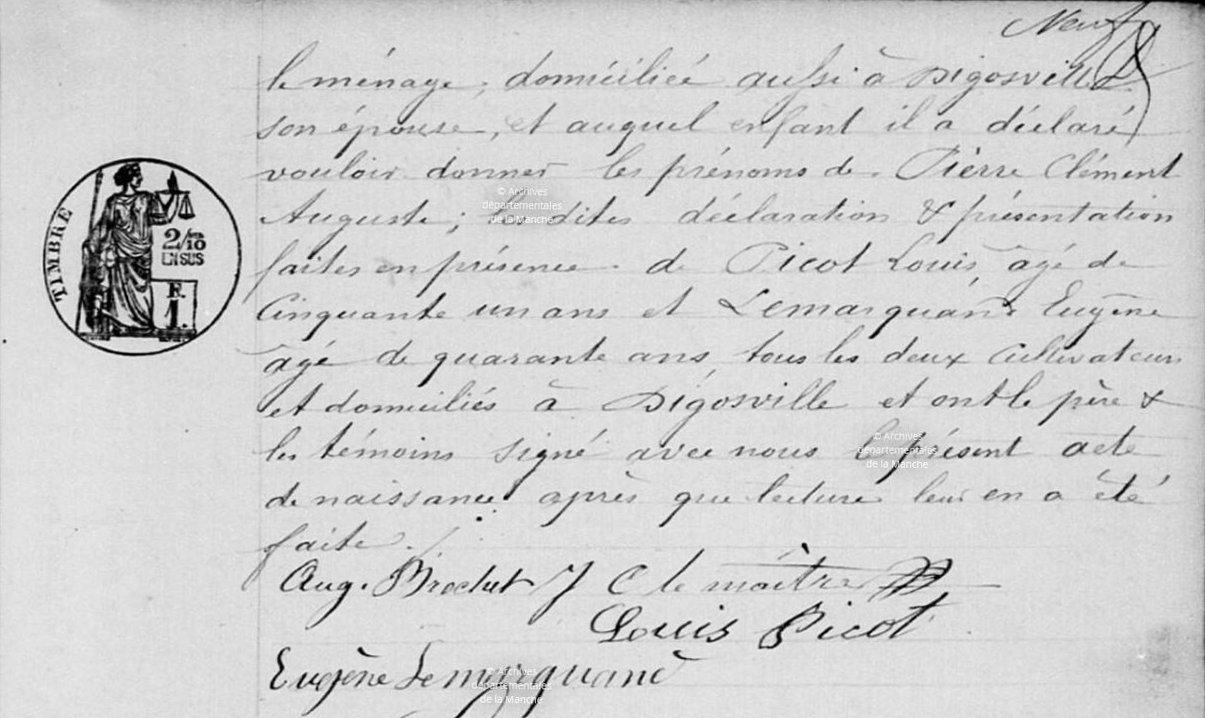 Neuf
le ménage, domiciliée aussi à Digosville
son épouse, et auquel enfant il a déclaré
vouloir donner les prénoms de Pierre Clément
Auguste; desdites déclaration & présentation
faites en présence de Picot Louis, âgé de
Cinquante un ans et Lemarquand Eugène
âgé de quarante ans, tous les deux cultivateurs
et domiciliés à Digosville et ont le père &
les témoins signé avec nous le présent acte
de naissance après que lecture leur en a été
faite.
Aug. Brochet J C le maître
Louis Picot
Eugène Lemarquand
TIMBRE
2/10
EN SUS
F.
1.
© Archives
départementales
de la Manche
© Archives
départementales
de la Manche
© Archives
départementales
de la Manche